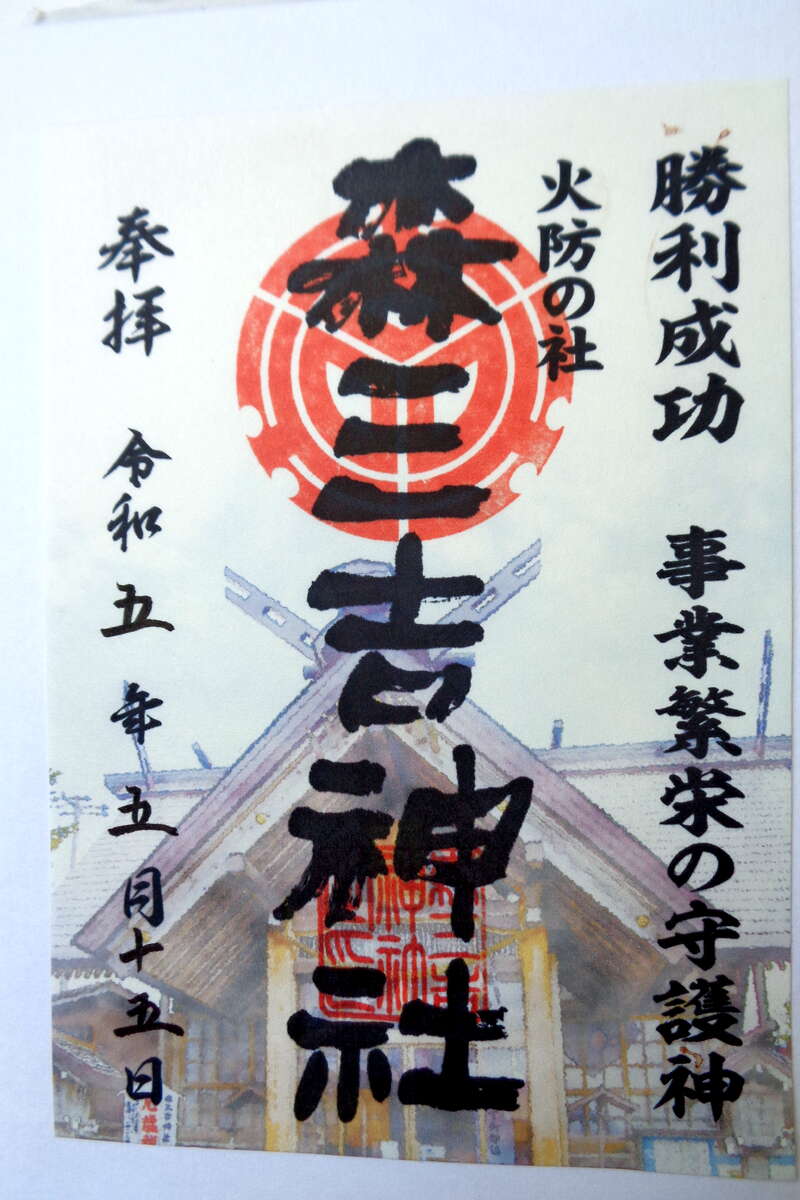 勝利成功 事業繁栄の守護神
火防の社
森三吉神社
奉拝 令和五年五月十五日